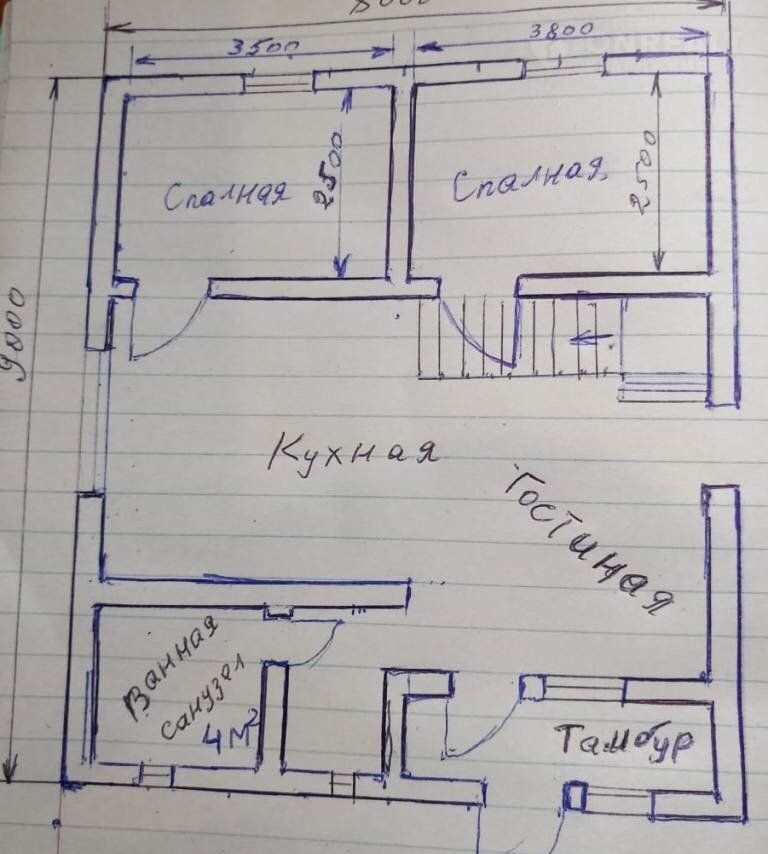 8000
3500
3800
Спалная
2500
Спалная
2500
9000
Кухная
Гостиная
Ванная
санузел
4 м²
Тамбур